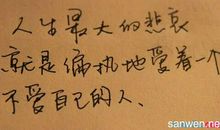 人生最大的悲哀
就是偏执地爱着一个
不爱自己的人.
sanwen.net